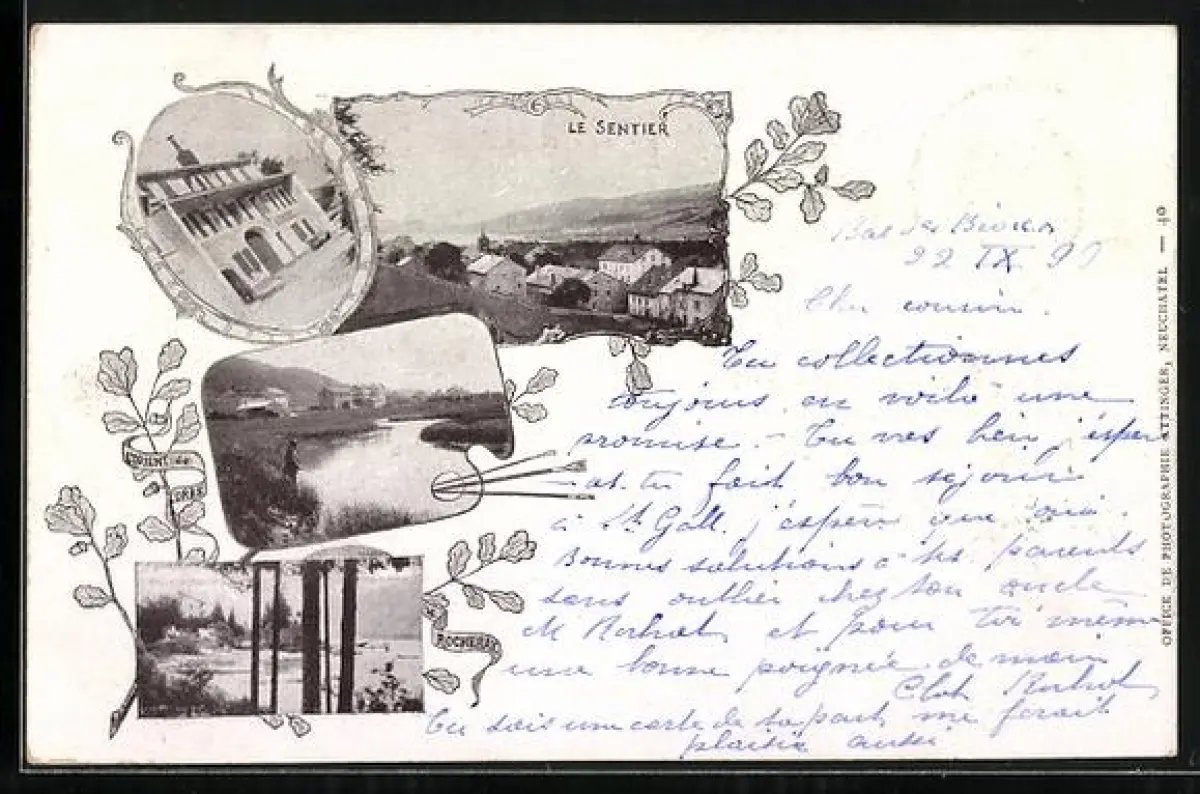 LE SENTIER
L'ORIENT de
L'ORBE
ROCHERAY
22 IX 99
Cher cousin.
Tu collectionnes
toujours, en voilà une
promise. - Tu vas bien j'espère
as-tu fait bon séjour
à St. Gall, j'espère que oui.
Bonnes salutations à tes parents
sans oublier chez ton oncle
M Rochat et pour toi même
une bonne poignée de main
Rochat
Tu sais une carte de ta part me ferait
plaisir aussi
OFFICE DE PHOTOGRAPHIE ATTINGER, NEUCHATEL — 40